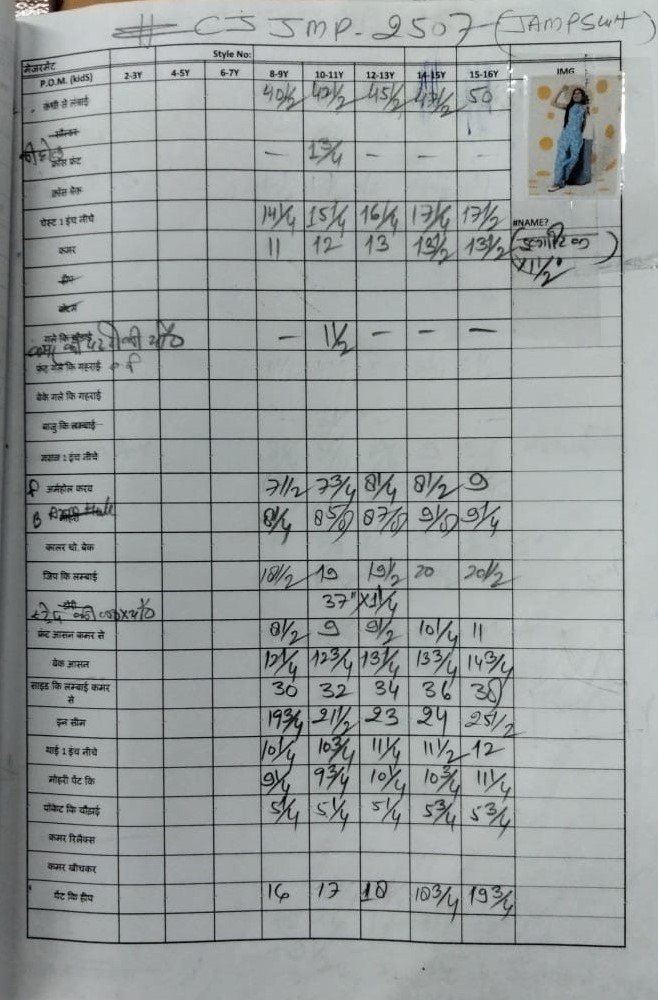 # CJ JMP-2507 (JAMPSUIT)
मेजरमेंट Style No:
P.O.M. (kidS) 2-3Y 4-5Y 6-7Y 8-9Y 10-11Y 12-13Y 14-15Y 15-16Y IMG
कंधे से लंबाई 40 1/2 42 1/2 45 1/2 47 1/2 50
क्रॉस फ्रंट — 1 3/4 — — —
क्रॉस बेक
चेस्ट 1 इंच नीचे 14 1/4 15 1/4 16 1/4 17 1/4 17 1/2 #NAME?
कमर 11 12 13 13 1/2 13 1/2
X 11/2"
हीप
गले कि चौड़ाई — 1 1/2 — — —
फ्रंट गले कि गहराई
बेके गले कि गहराई
बाजु कि लम्बाई
1 इंच नीचे
F आर्महोल करव 7 1/2 7 3/4 8 1/4 8 1/2 9
B 8 1/4 8 5/8 8 7/8 9 1/8 9 1/4
कालर चौ. बेक
जिप कि लम्बाई 18 1/2 19 19 1/2 20 20 1/2
37" X 1 1/4
फ्रंट आसन कमर से 8 1/2 9 9 1/2 10 1/4 11
बेक आसन 12 1/4 12 3/4 13 1/4 13 3/4 14 3/4
साइड कि लम्बाई कमर से 30 32 34 36 38
इन सीम 19 3/4 21 1/2 23 24 25 1/2
थाई 1 इंच नीचे 10 1/4 10 3/4 11 1/4 11 1/2 12
मोहरी पेंट कि 9 1/4 9 3/4 10 1/4 10 3/4 11 1/4
पॉकेट कि चौड़ाई 5 1/4 5 1/4 5 1/4 5 3/4 5 3/4
कमर रिलैक्स
कमर खींचकर
पेंट कि हीप 16 17 18 18 3/4 19 3/4